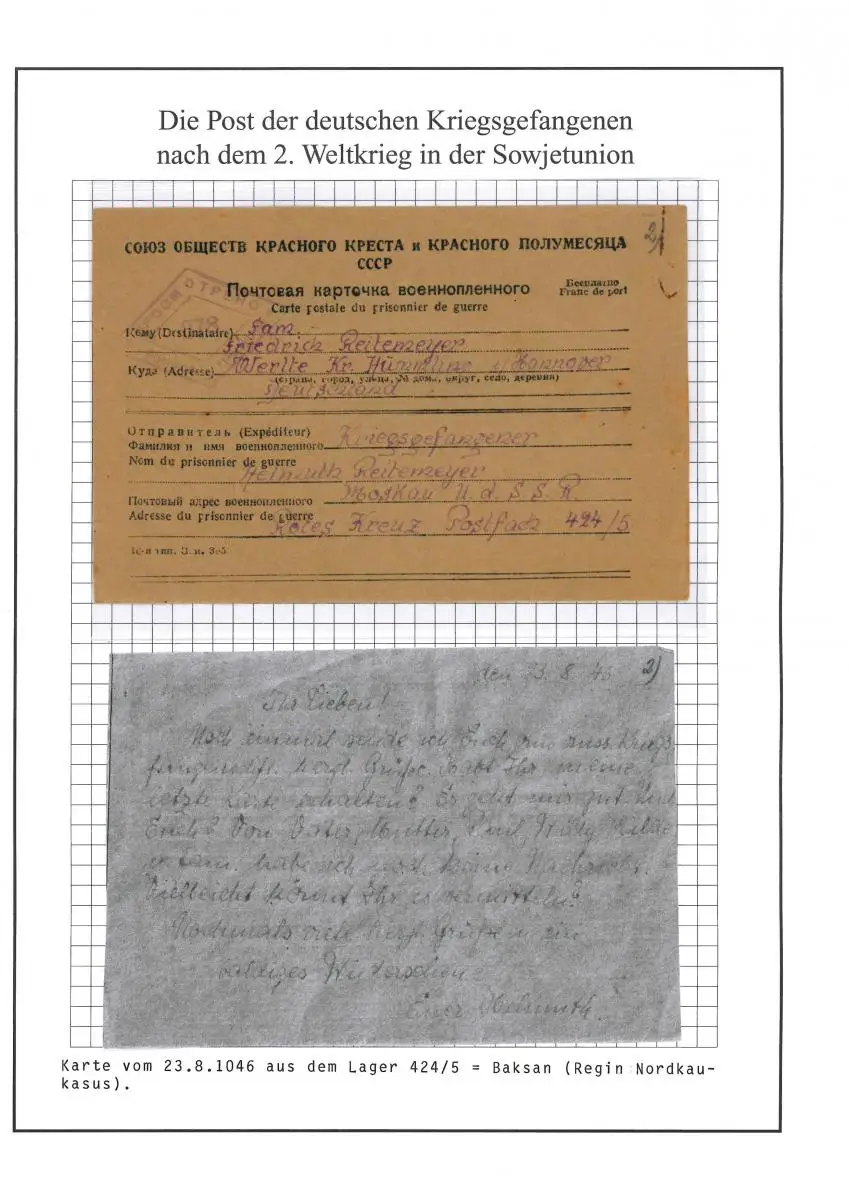 Die Post der deutschen Kriegsgefangenen
nach dem 2. Weltkrieg in der Sowjetunion
2)
СОЮЗ ОБЩЕСТВ КРАСНОГО КРЕСТА и КРАСНОГО ПОЛУМЕСЯЦА
СССР
Почтовая карточка военнопленного
Бесплатно
Franc de port
Carte postale du prisonnier de guerre
Кому (Destinataire) Fam.
Friedrich Reitemeyer
Куда (Adresse) Werlte Kr. Hümmling Hannover
(страна, город, улица, № дома, округ, село, деревня)
Deutschland
Отправитель (Expéditeur)
Фамилия и имя военнопленного Kriegsgefangener
Nom du prisonnier de guerre
Helmuth Reitemeyer
Почтовый адрес военнопленного Moskau U.d.S.S.R.
Adresse du prisonnier de guerre Rotes Kreuz Postfach 424/5
den 23. 8. 46 2)
Ihr Lieben!
Noch einmal sende ich Euch russ. Kriegs-
herzl. Grüße. Habt Ihr meine
letzte Karte erhalten? Es geht mir gut. Und
Euch? Von Vater, Mutter, Willy
u. Fam. habe ich noch keine Nachricht.
Vielleicht könnt Ihr es vermitteln?
Nochmals viele herzl. Grüße u. ein
baldiges Wiedersehen
Euer Helmuth.
Karte vom 23.8.1046 aus dem Lager 424/5 = Baksan (Regin Nordkau-
kasus).